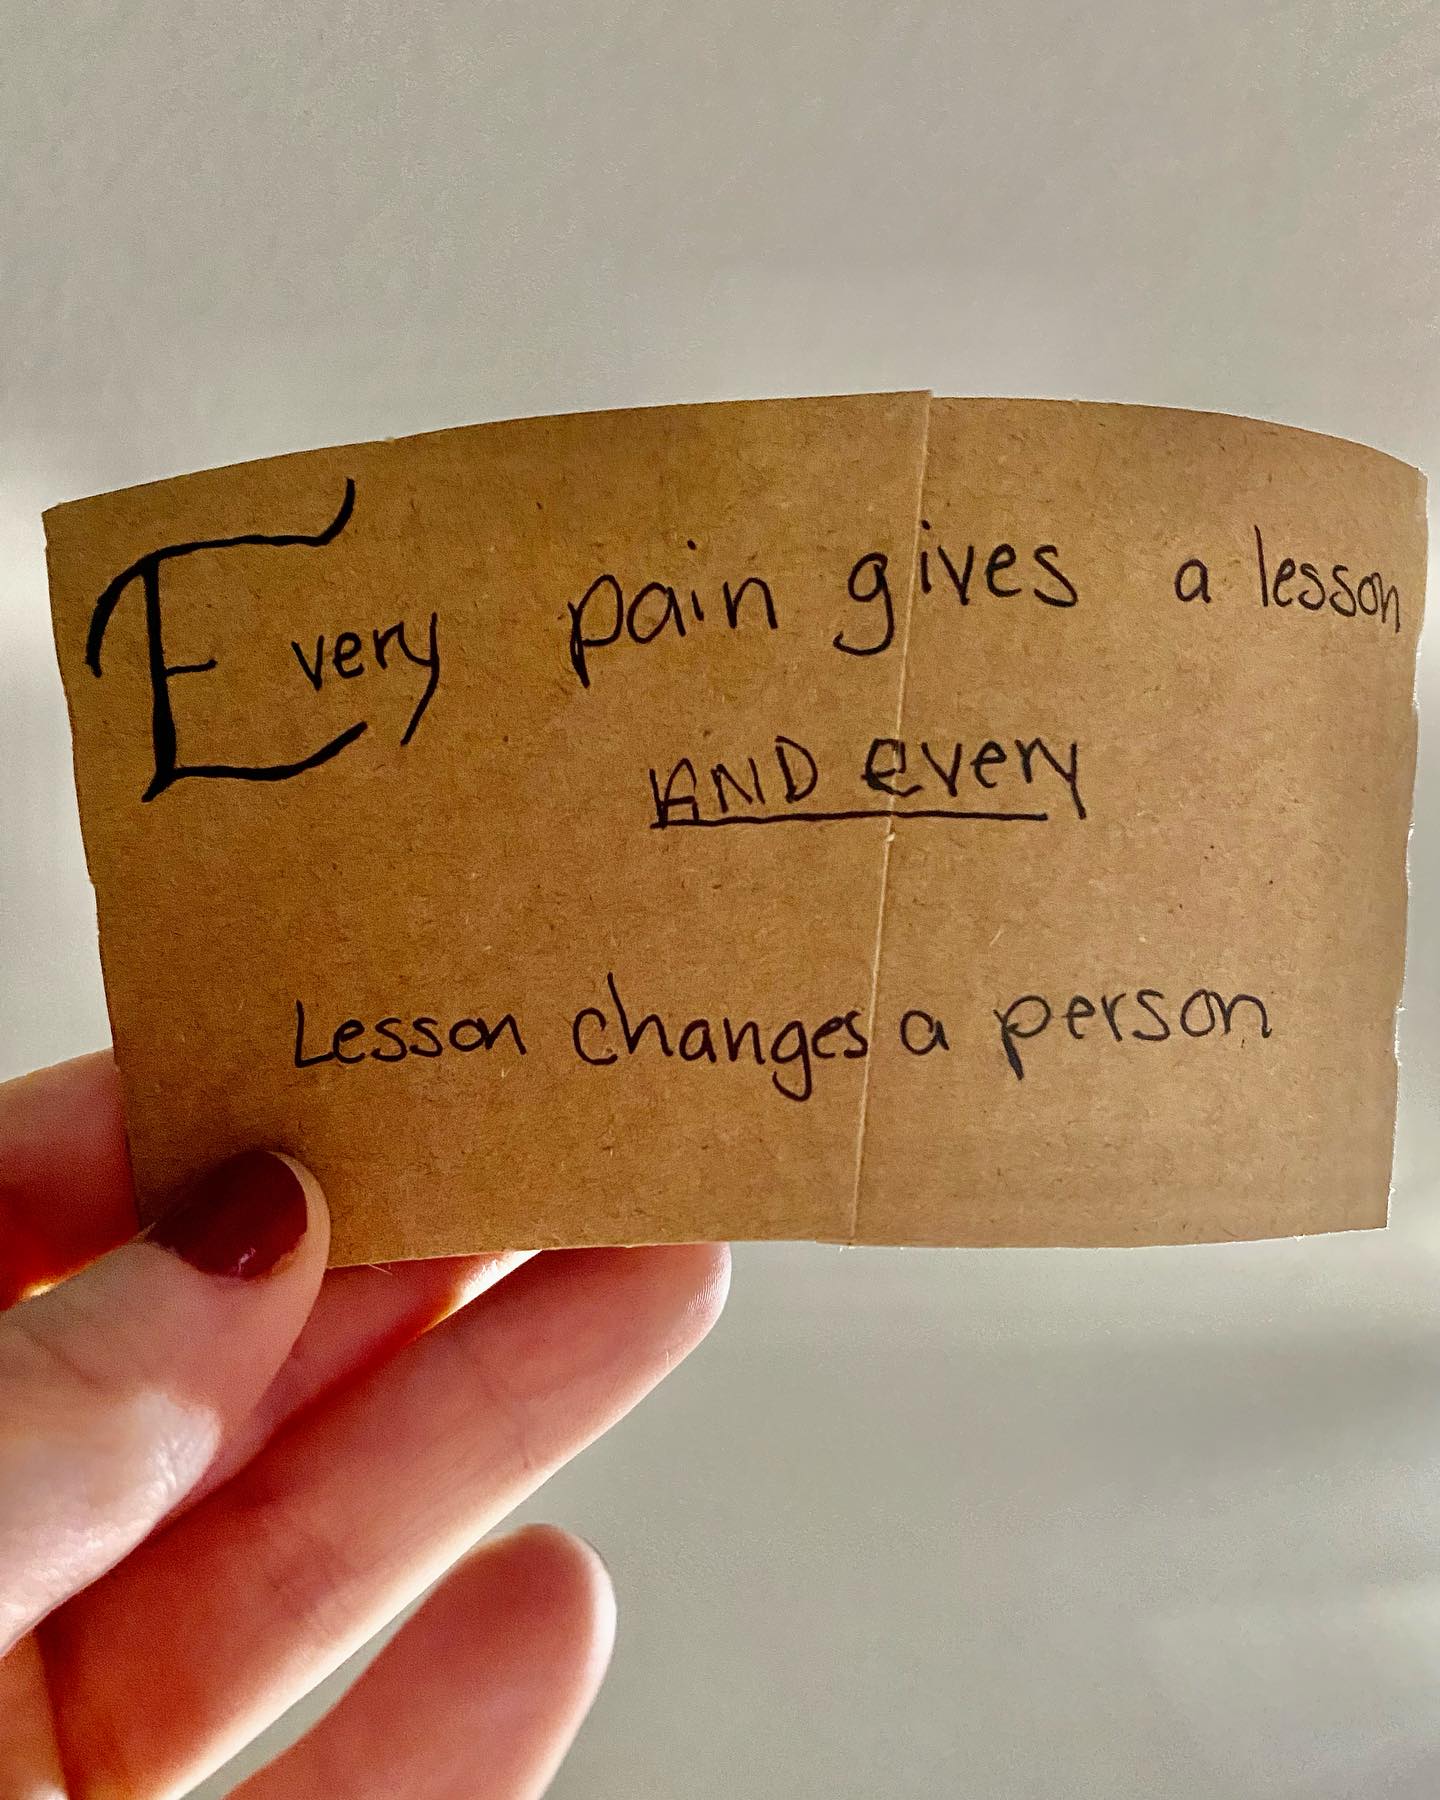 Every pain gives a lesson
AND every
Lesson changes a person